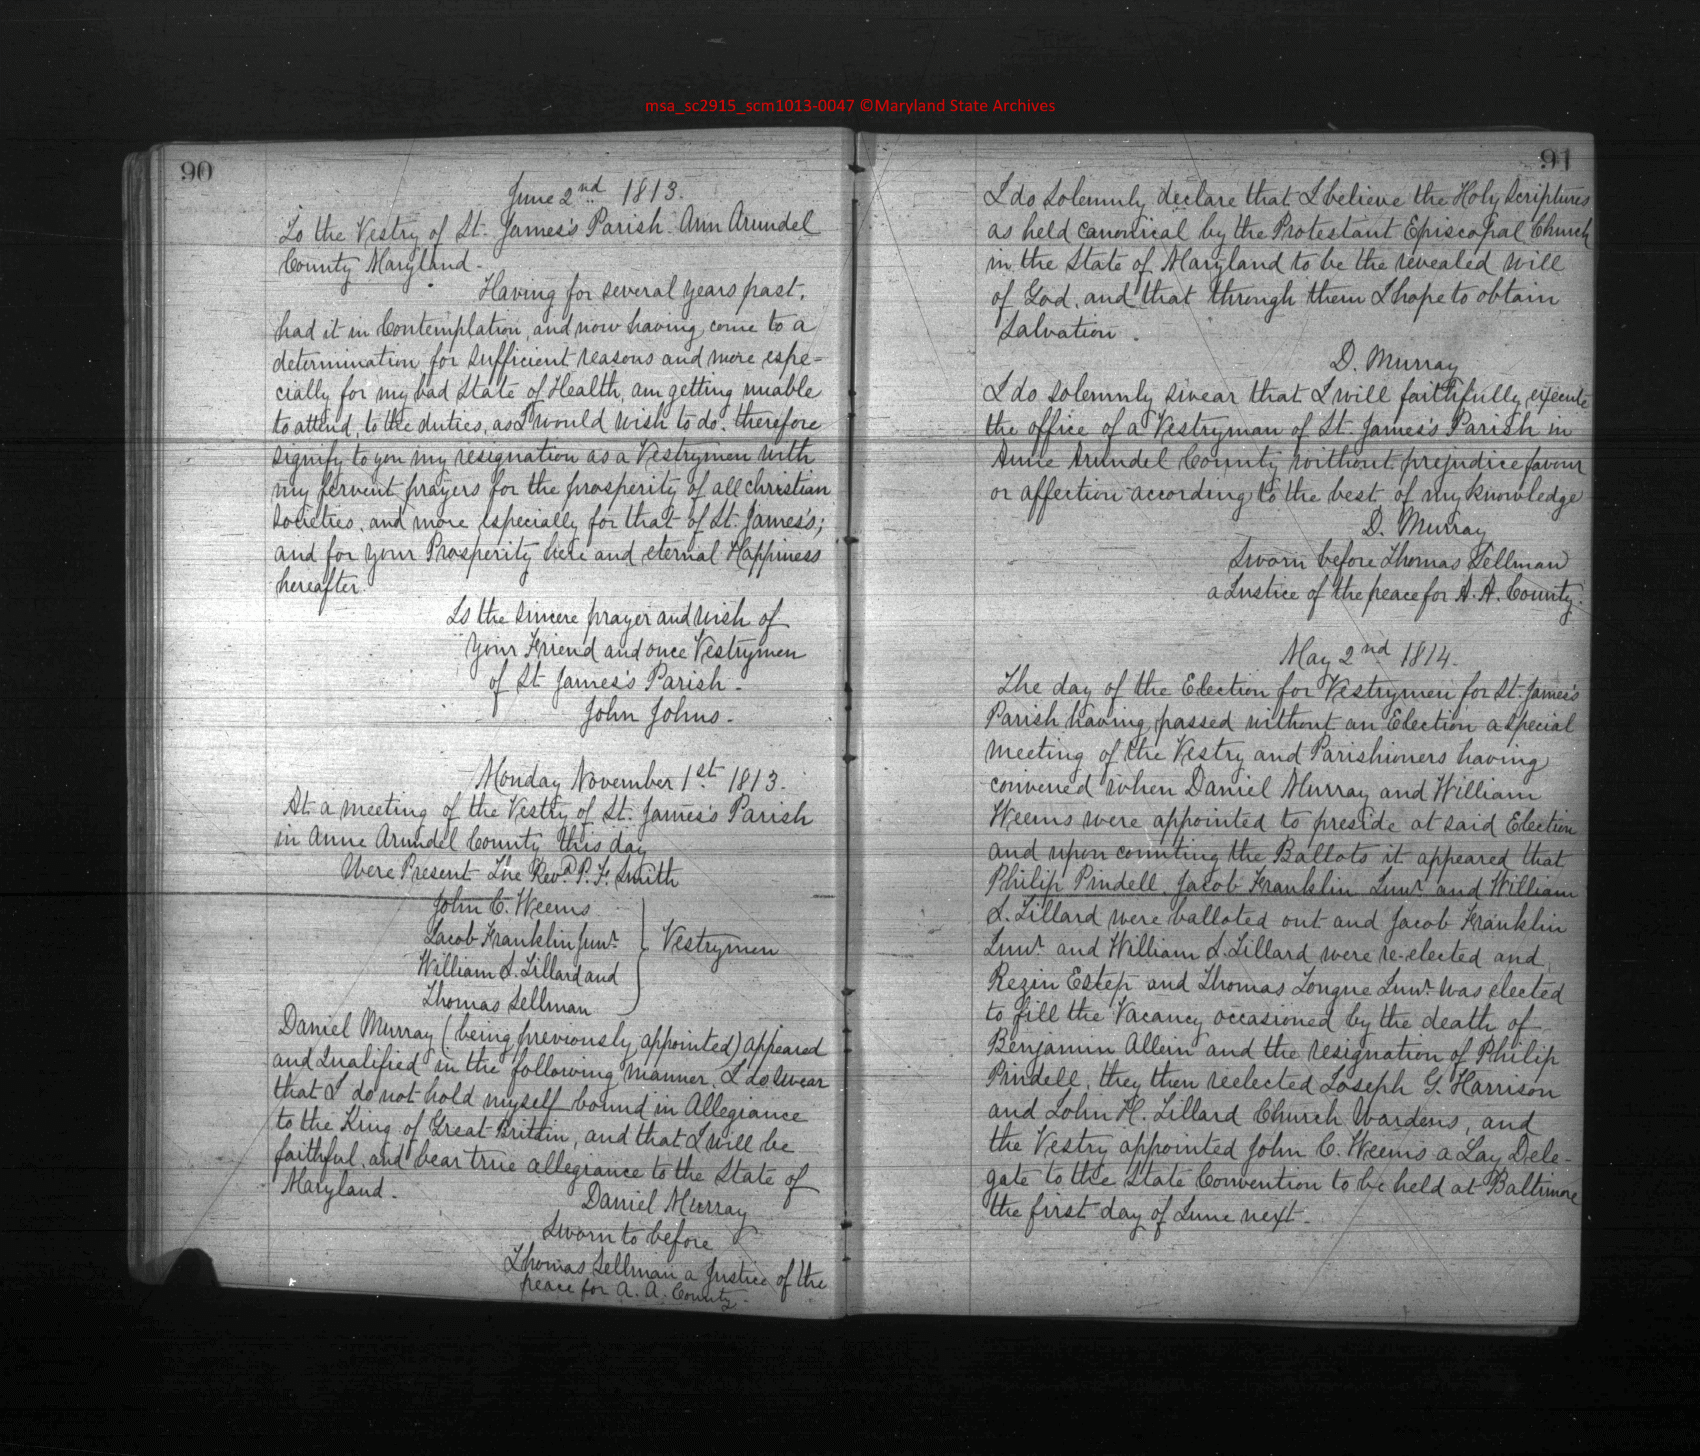 msa_sc2915_scm1013-0047 ©Maryland State Archives
90
June 2nd 1813.
To the Vestry of St. James's Parish Ann Arundel
County Maryland.
Having for several years past,
had it in Contemplation, and now having come to a
determination for sufficient reasons and more espe-
cially for my bad State of Health, am getting unable
to attend, to the duties, as I would wish to do, therefore
signify to you my resignation as a Vestrymen with
my fervent prayers for the prosperity of all christian
Societies, and more especially for that of St. James's;
and for your Prosperity here and eternal Happiness
hereafter.
Is the sincere prayer and wish of
your Friend and once Vestrymen
of St James's Parish.
John Johns.
Monday November 1st 1813.
At a meeting of the Vestry of St. James's Parish
in Anne Arundel County this day
Were Present The Revd. P. F. Smith
John C. Weems
Jacob Franklin Junr.
Vestrymen
William S. Lillard and
Thomas Sellman
Daniel Murray (being previously appointed) appeared
and Qualified in the following manner, I do Swear
that I do not hold myself bound in Allegiance
to the King of Great Britain, and that I will be
faithful, and bear true allegiance to the State of
Maryland.
Daniel Murray
Sworn to before
Thomas Sellman a Justice of the
peace for A. A. County.
91
I do Solemnly declare that I believe the Holy Scriptures
as held canonical by the Protestant Episcopal Church
in the State of Maryland to be the revealed will
of God, and that through them I hope to obtain
Salvation.
D. Murray
I do solemnly swear that I will faithfully execute
the office of a Vestryman of St. James's Parish in
Anne Arundel County without prejudice favour
or affection according to the best of my knowledge
D. Murray
Sworn before Thomas Sellman
a Justice of the peace for A. A. County.
May 2nd 1814.
The day of the Election for Vestrymen for St. James's
Parish having passed without an Election a special
meeting of the Vestry and Parishioners having
convened when Daniel Murray and William
Weems were appointed to preside at said Election
and upon counting the Ballots it appeared that
Philip Pindell, Jacob Franklin Junr. and William
S. Lillard were balloted out and Jacob Franklin
Junr. and William S. Lillard were re-elected and
Rezin Estep and Thomas Tongue Junr. was elected
to fill the Vacancy occasioned by the death of
Benjamin Allein and the resignation of Philip
Pindell, they then reelected Joseph G. Harrison
and John H. Lillard Church Wardens, and
the Vestry appointed John C. Weems a Lay Dele-
gate to the State Convention to be held at Baltimore
the first day of June next.